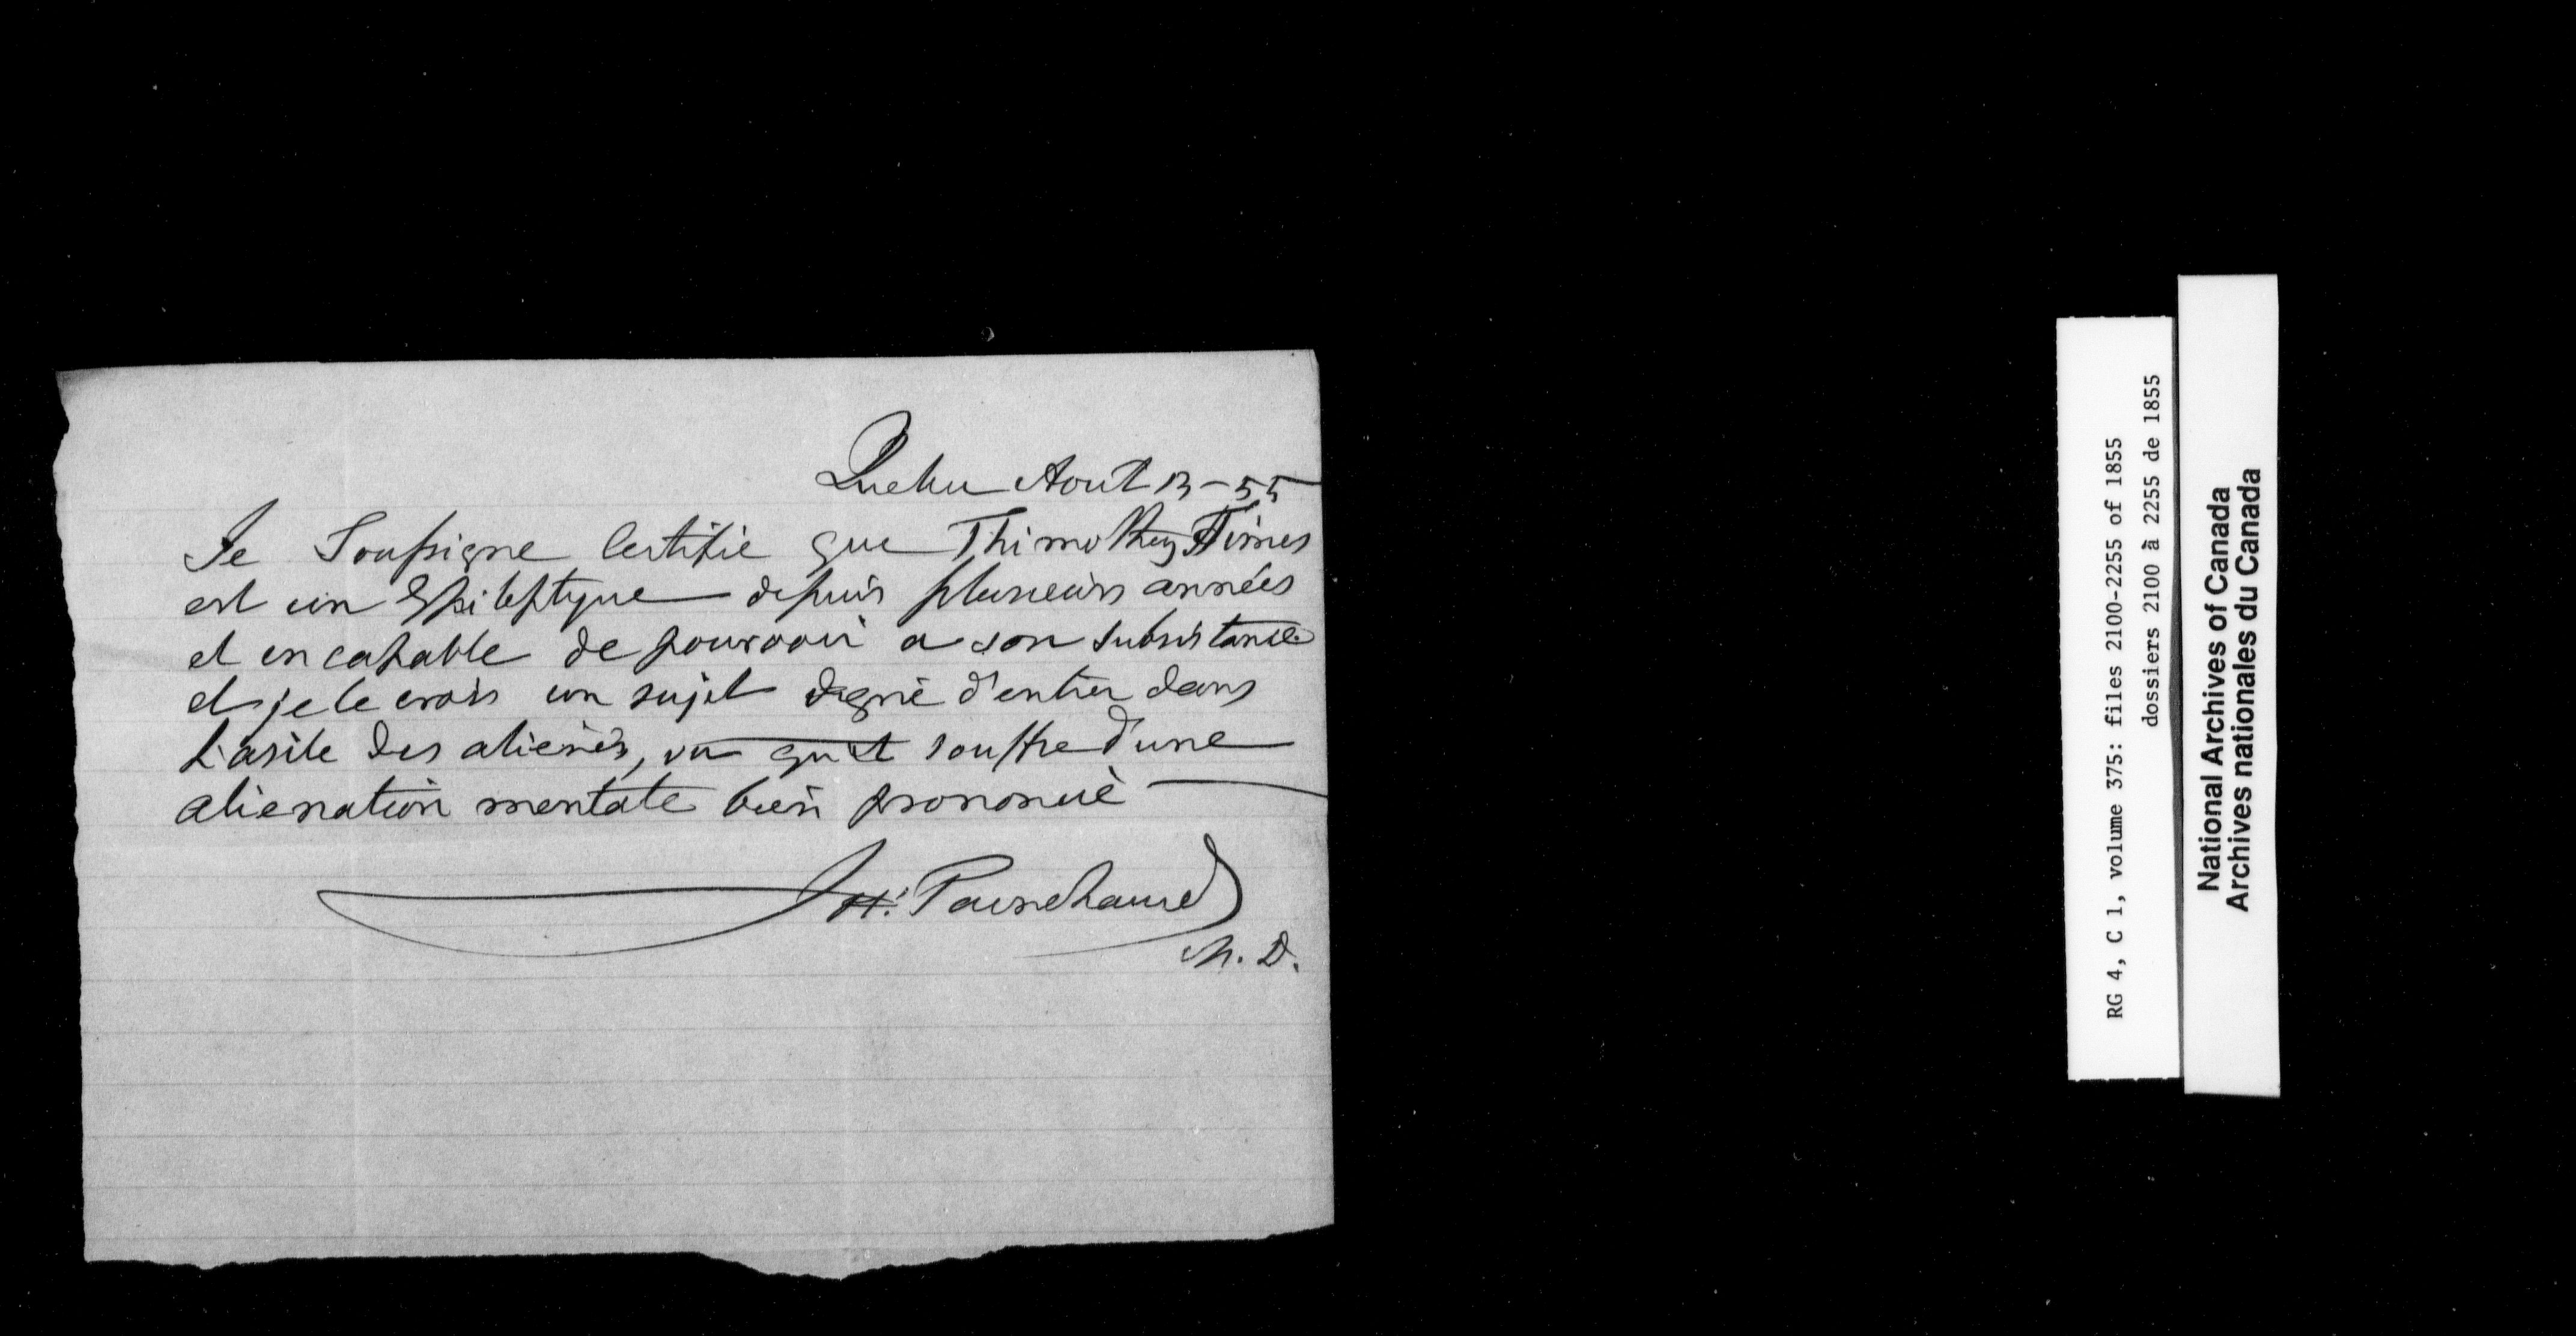 Quebec Aout 13 – 55
Je Soussigne Certifie que Thimothey
est un Epileptque depuis plusieurs années
et incapable de pourvoir a son subsistance
et je le crois un sujet digne d'entrer dans
L'asile des alienés, vu qu'il souffre d'une
alienation mentale bien prononcé
H. Painchaud
M. D.
RG 4, C 1, volume 375: files 2100-2255 of 1855
dossiers 2100 à 2255 de 1855
National Archives of Canada
Archives nationales du Canada